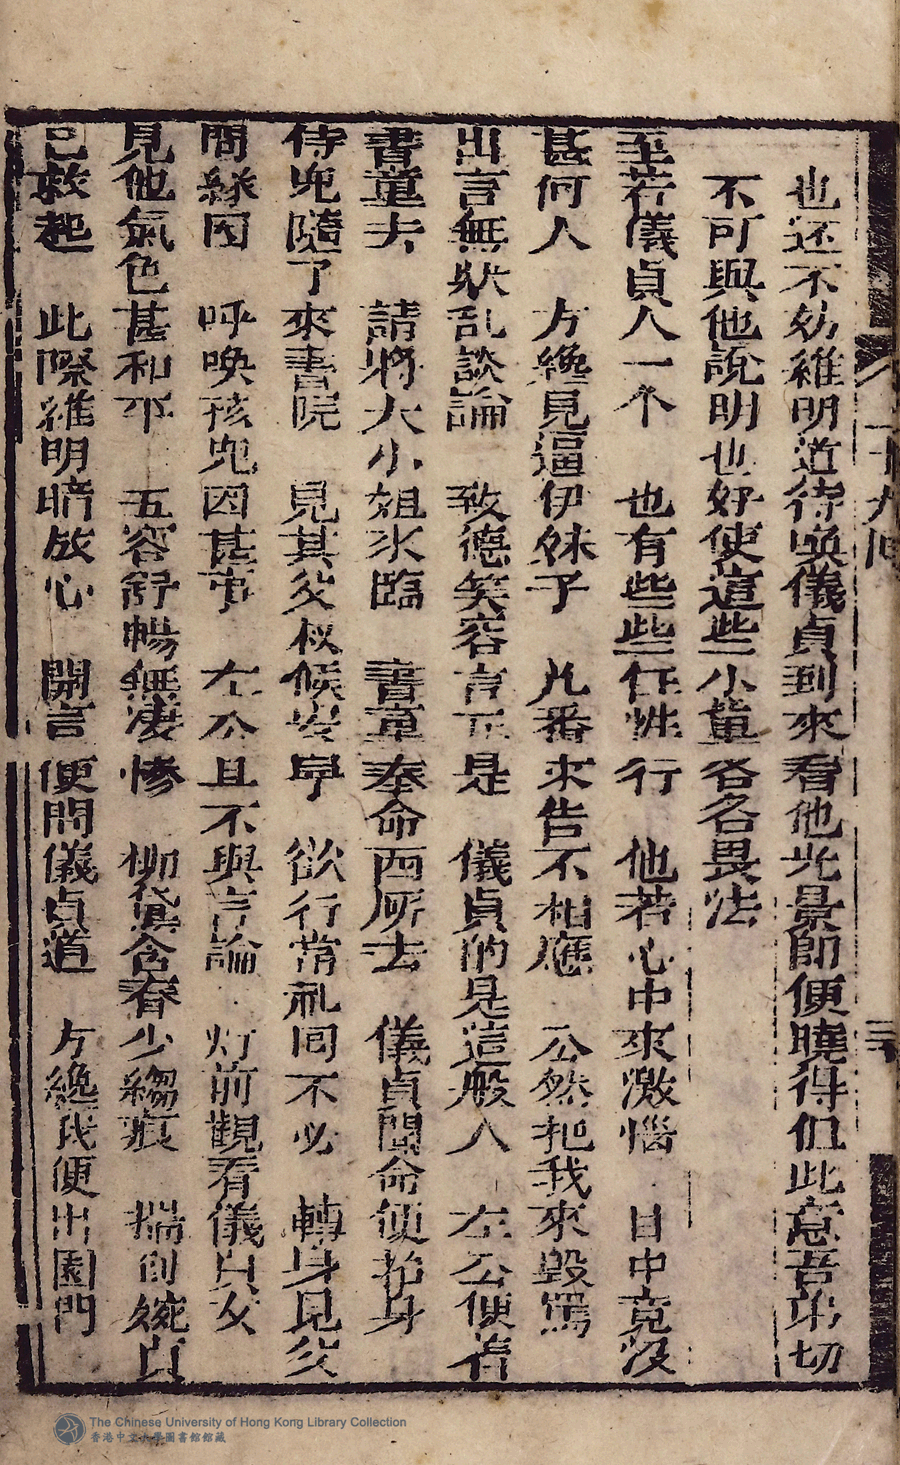 也还不妨維明道待喚儀貞到來看他光景即便曉得但此意吾弟切
不可與他說明也好使這些小童各各畏法
至若儀貞人一个 也有些些任性行 他若心中來激惱 目中竟沒
甚何人 方纔見逼伊妹子 凡番來告不相應 公然把我來毀罵
出言無狀乱談論 致德笑容言正是 儀貞的是這般人 左公便着
書童去 請將大小姐來臨 書童奉命西厢去 儀貞聞命便抬身
侍兒隨了來書院 見其父叔候安寧 欲行常礼同不必 轉身見父
問緣因 呼喚孩兒因甚事 左公且不與言論 灯前觀看儀貞女
見他氣色甚和平 五容舒暢無凄慘 柳黛含春少縐痕 揣自婉貞
已救起 此際維明暗放心 開言便問儀貞道 方纔我便出園門
十九回